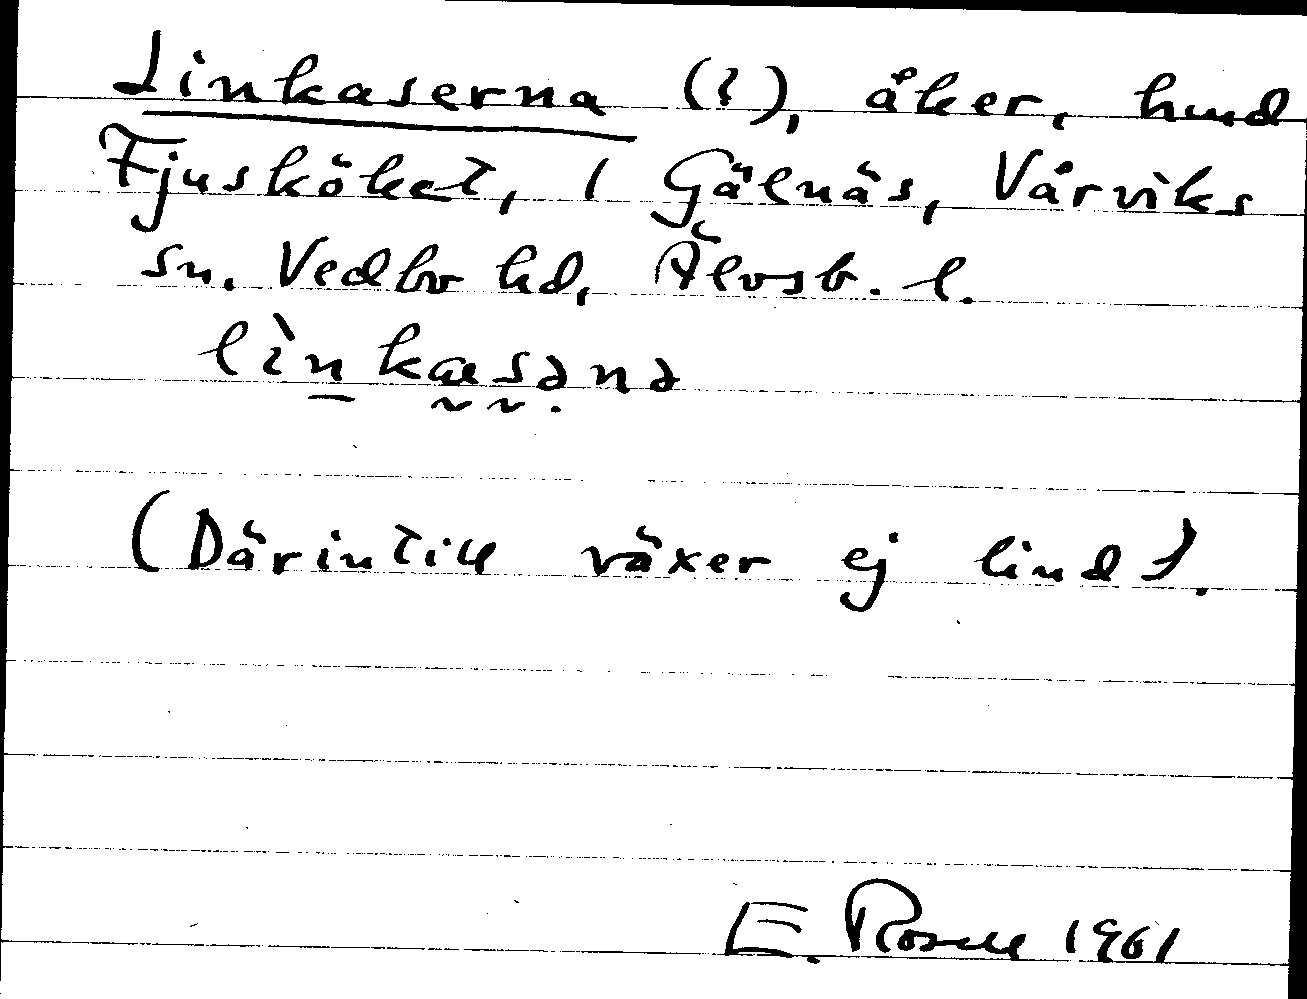 Linkaserna (?), åker, hmd
Fjusköket, 1 Gälnäs, Vårviks
sn. Vedbo hd, Älvsb. l.
lìnkasəna
(Därintill växer ej lind).
E. Rosell 1961